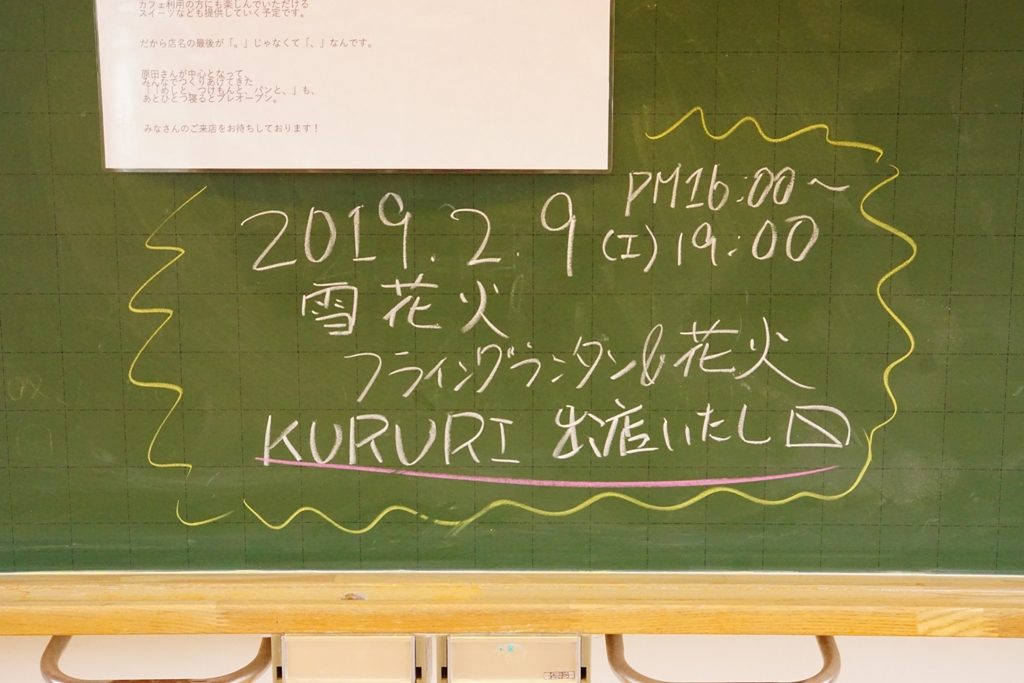 カフェ利用の方にも楽しんでいただける
スイーツなども提供していく予定です。
だから店名の最後が「。」じゃなくて「、」なんです。
原田さんが中心となって、
みんなでつくりあげてきた
「めしと、つけもんと、パンと、」も、
あとひとつ寝るとプレオープン。
みなさんのご来店をお待ちしております!
PM16:00〜
2019.2.9 (土) 19:00
雪花火
フライングランタン&花火
KURURI 出店いたし〼